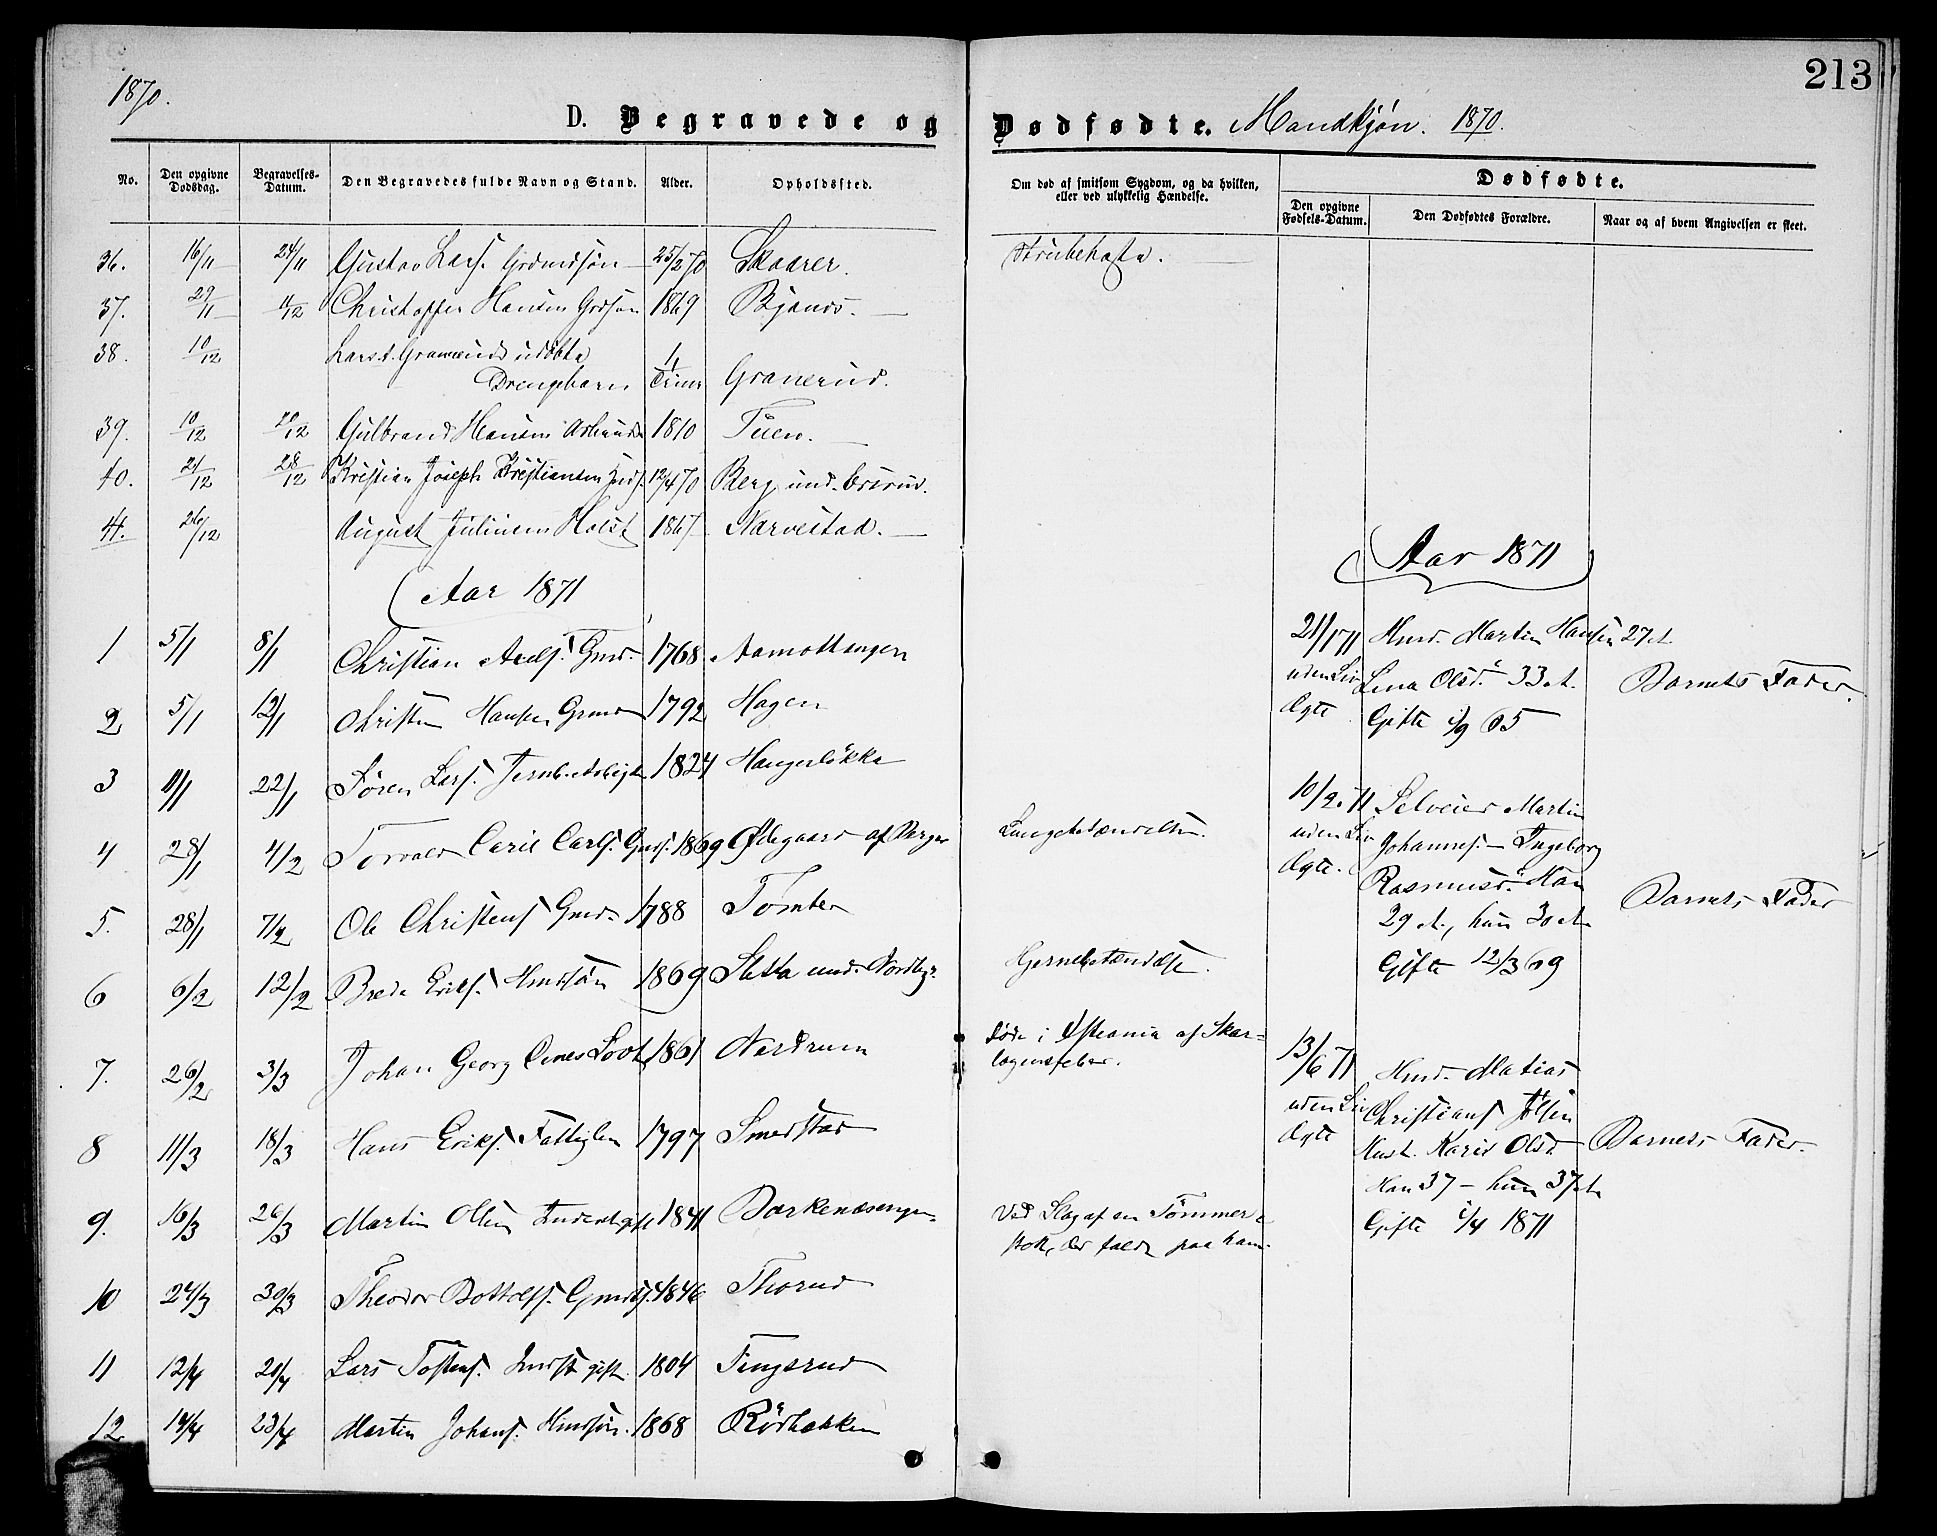 213
1870.
D. Begravede og Dødfødte. Mandkjøn. 1870.
No. Den opgivne Dødsdag. Begravelses-Datum. Den Begravedes fulde Navn og Stand. Alder. Opholdssted.
Om død af smitsom Sygdom, og da hvilken, eller ved ulykkelig Hændelse.
Dødfødte.
Den opgivne Fødsels-Datum. Den Dødfødtes Forældre. Naar og af hvem Angivelsen er skeet.
36. 16/11 24/11 Gustav Lars. 25/2 70 Skaarer. Strubehoste.
37. 29/11 Christoffer Hansen 1869
38. 10/12 udøbte
Drengebarn Granerud.
39. 10/12 Gulbrand Hansen 1810 Tuen.
40. 21/12 28/12 Kristian Joseph Kristiansen 12/4 70 Berg und.
41. 26/12 August Julinsen Holst 1867 Narvestad.
Aar 1871
Aar 1871
1 5/1 8/1 Christian Axels. Gmd. 1768 Aamothangen
2 5/1 12/1 Christen Hansen Gmd 1792 Hagen
3 22/1 Søren Lars. 1824 Haugerløkka
4 28/1 4/2 Torvald Carl Carls. 1869 Ødegaard af Berger Lungebetændelse.
5. 28/1 7/2 Ole Christens. Gmd. 1788 Tomter
6 6/2 12/2 Brede Eriks. Hmdsøn 1869 Sletta und. Nordby. Hjernebetændelse.
7. 26/2 3/3 Johan Georg 1861 Nordrum Døde i Xstiania af Skar-
lagensfeber.
8 11/3 18/3 Hans Eriks. Fattiglem 1797 Smedstad
9. 16/3 26/3 Martin Olsen 1841 Barkenæsengen Ved Slag af en Tømmer-
stok, der faldt paa ham.
10 24/3 30/3 Theodor Bottolfs. 1846 Thorud
11 12/4 20/4 Lars Tostens. gift. 1804 Tingsrud
12 14/4 23/4 Martin Johans. Hmdsøn. 1868 Rödbakken
21/1 71 Hmd. Martin Hansen 27 A.
uden Liv Lina Olsd. 33 A. Barnets Fader.
Ægte Gifte 65
10/2 71 Selveier Martin
uden Liv Johannes. – Ingeborg
Ægte. Rasmusd. Han
29 A., hun 30 A. Barnets Fader
Gifte 12/3 69
13/6 71 Hmd. Matias
uden Liv Christians.
Ægte Hust. Karid Olsd. Barnets Fader.
Han 37 – hun 37 A.
Gifte 1871